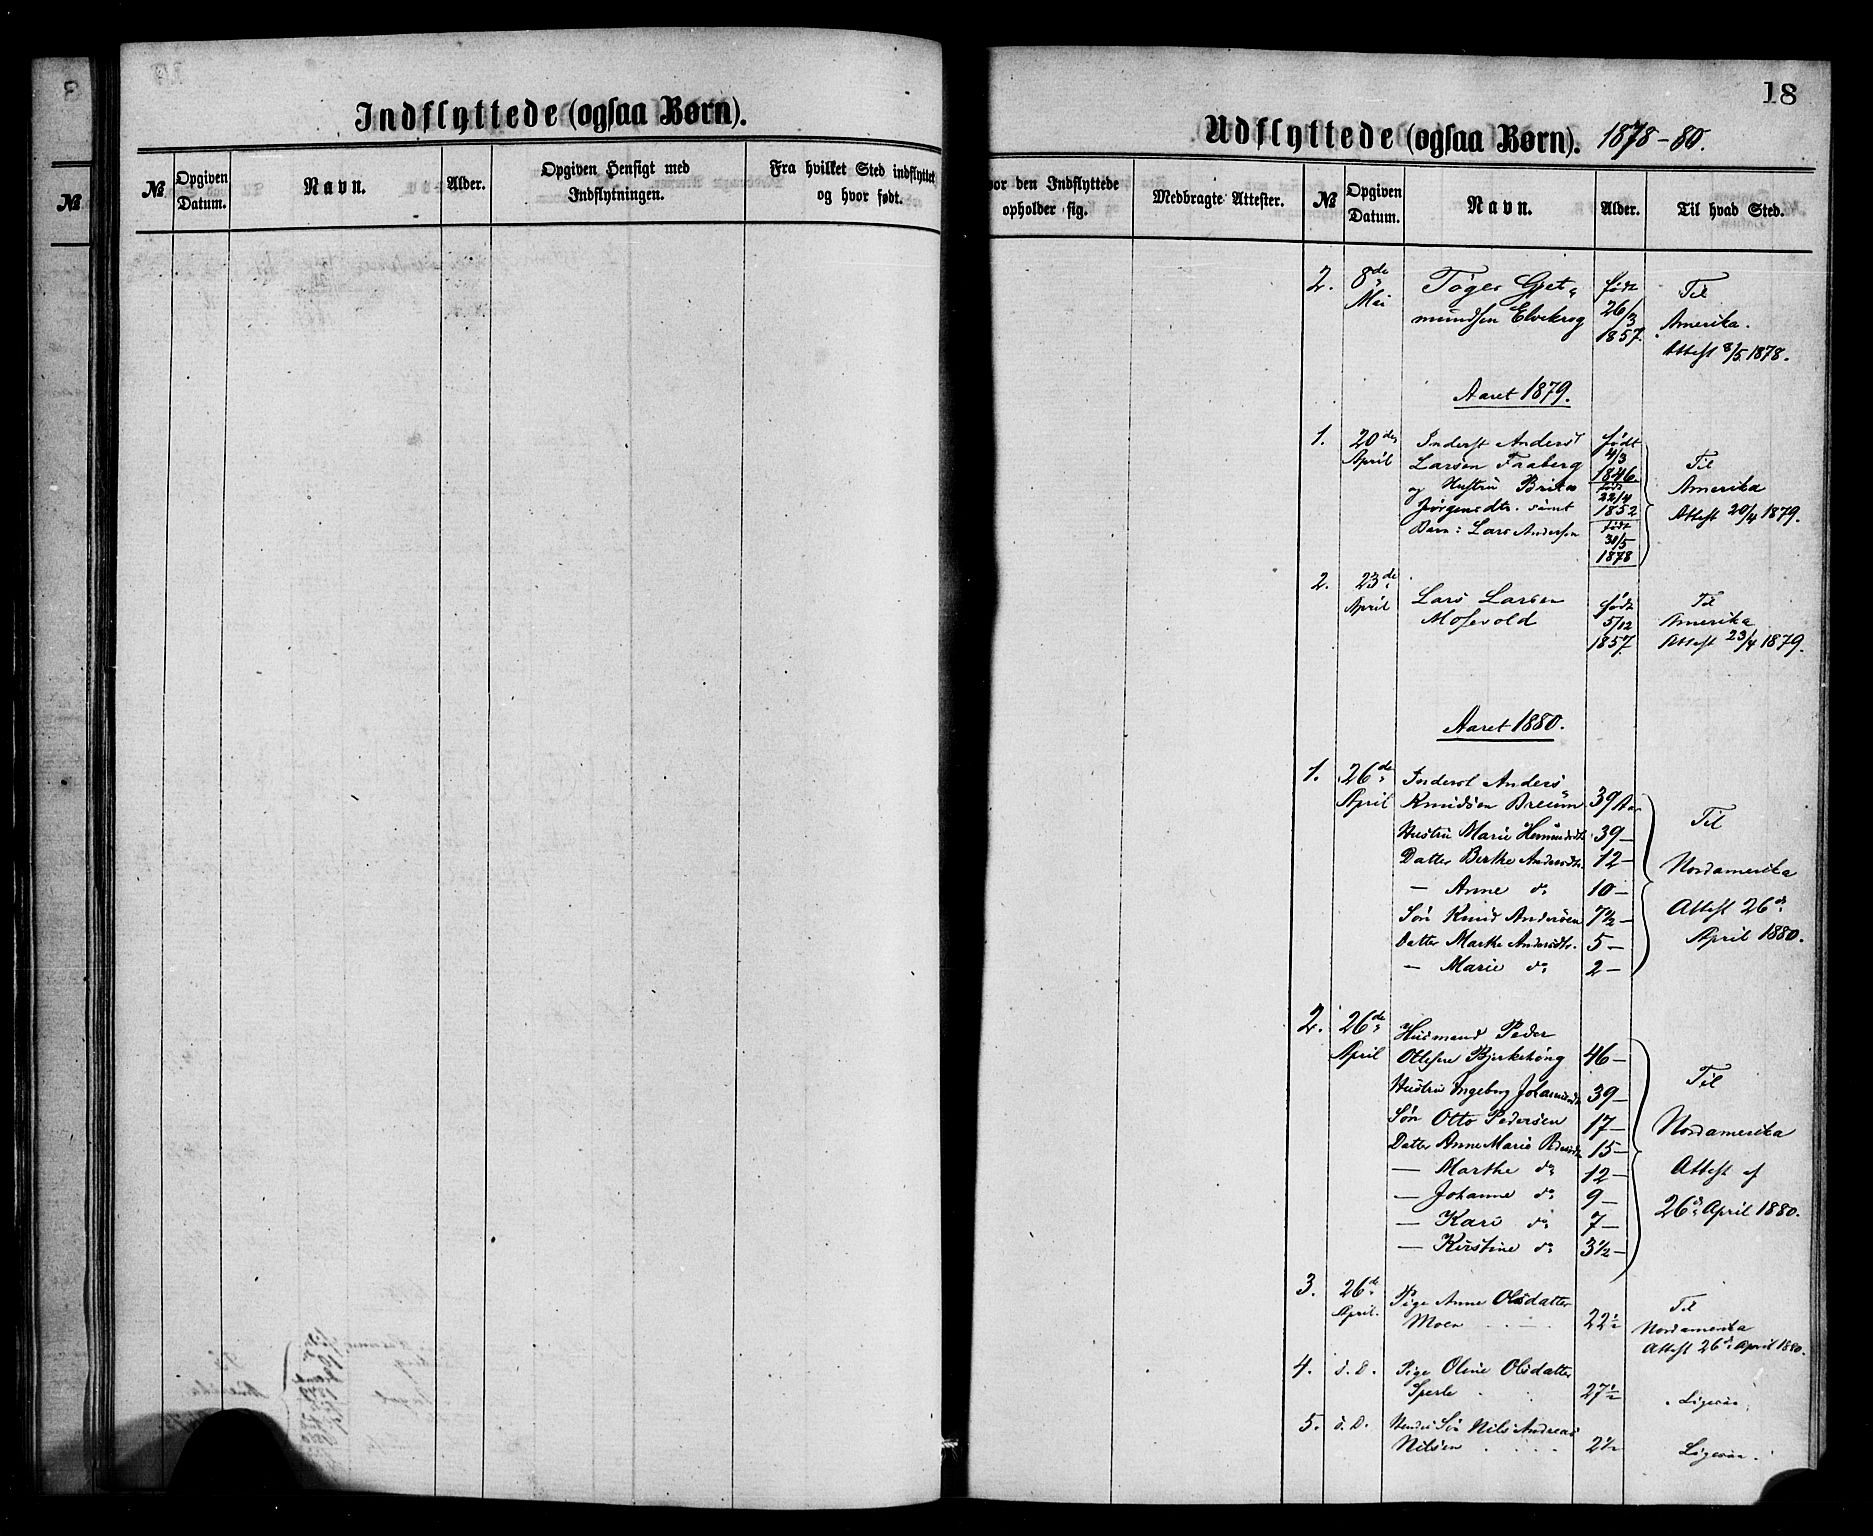 Indflyttede (ogsaa Børn).
№ Opgiven Datum. Navn. Alder. Opgiven Hensigt med Indflytningen. Fra hvilket Sted indflyttet og hvor født.
Udflyttede (ogsaa Børn). 1878-80.
18
vor den Indflyttede opholder sig. Medbragte Attester. № Opgiven Datum. Navn. Alder. Til hvad Sted.
2. 8de Tøger Gjet- født Til
Mai mundsen Elvekrog 26/3 Amerika.
1857. Attest 8/5 1878.
Aaret 1879.
1. 20de Inderst Anders født
April Larsen Faaberg 4/3 1846 Til
og Hustru Brita født 22/4 Amerika
Jørgensdtr. samt 1852 Attest 20/4 1879.
Barn: Lars Andersen født 30/5
1878
2. 23de Lars Larsen født Til
April Mosevold 5/12 Amerika
1857. Attest 23/4 1879.
Aaret 1880.
1. 26de Inderst Anders
April Knudsen Breum 39 Aar Til
Hustru Marie Hermundsdtr 39 -
Datter Berthe Andersdtr. 12 - Nordamerika
- Anne do 10 -
Søn Knud Andersen 7 1/2 - Attest 26de
Datter Marthe Andersdtr. 5 - April 1880.
- Marie do 2 -
2. 26de Husmand Peder
April Ottesen Bjerkehoug 46 -
Hustru Ingeborg Johannesdtr 39 - Til
Søn Otto Pedersen 17 - Nordamerika
Datter Anne Marie Pedersdtr 15 -
- Marthe do 12 - Attest af
- Johanne do 9 -
- Kari do 7 - 26de April 1880.
- Kirstine do 3 1/2 -
3. 26de Pige Anne Olsdatter Til
April. Moen 22 1/2 Nordamerika
Attest 26de April 1880.
4. d. D. Pige Oline Olsdatter
Sperle 27 1/2 Ligesaa
5. d. D. Hendes Søn Nils Andreas
Nilsen 2 1/2 Ligesaa.
№